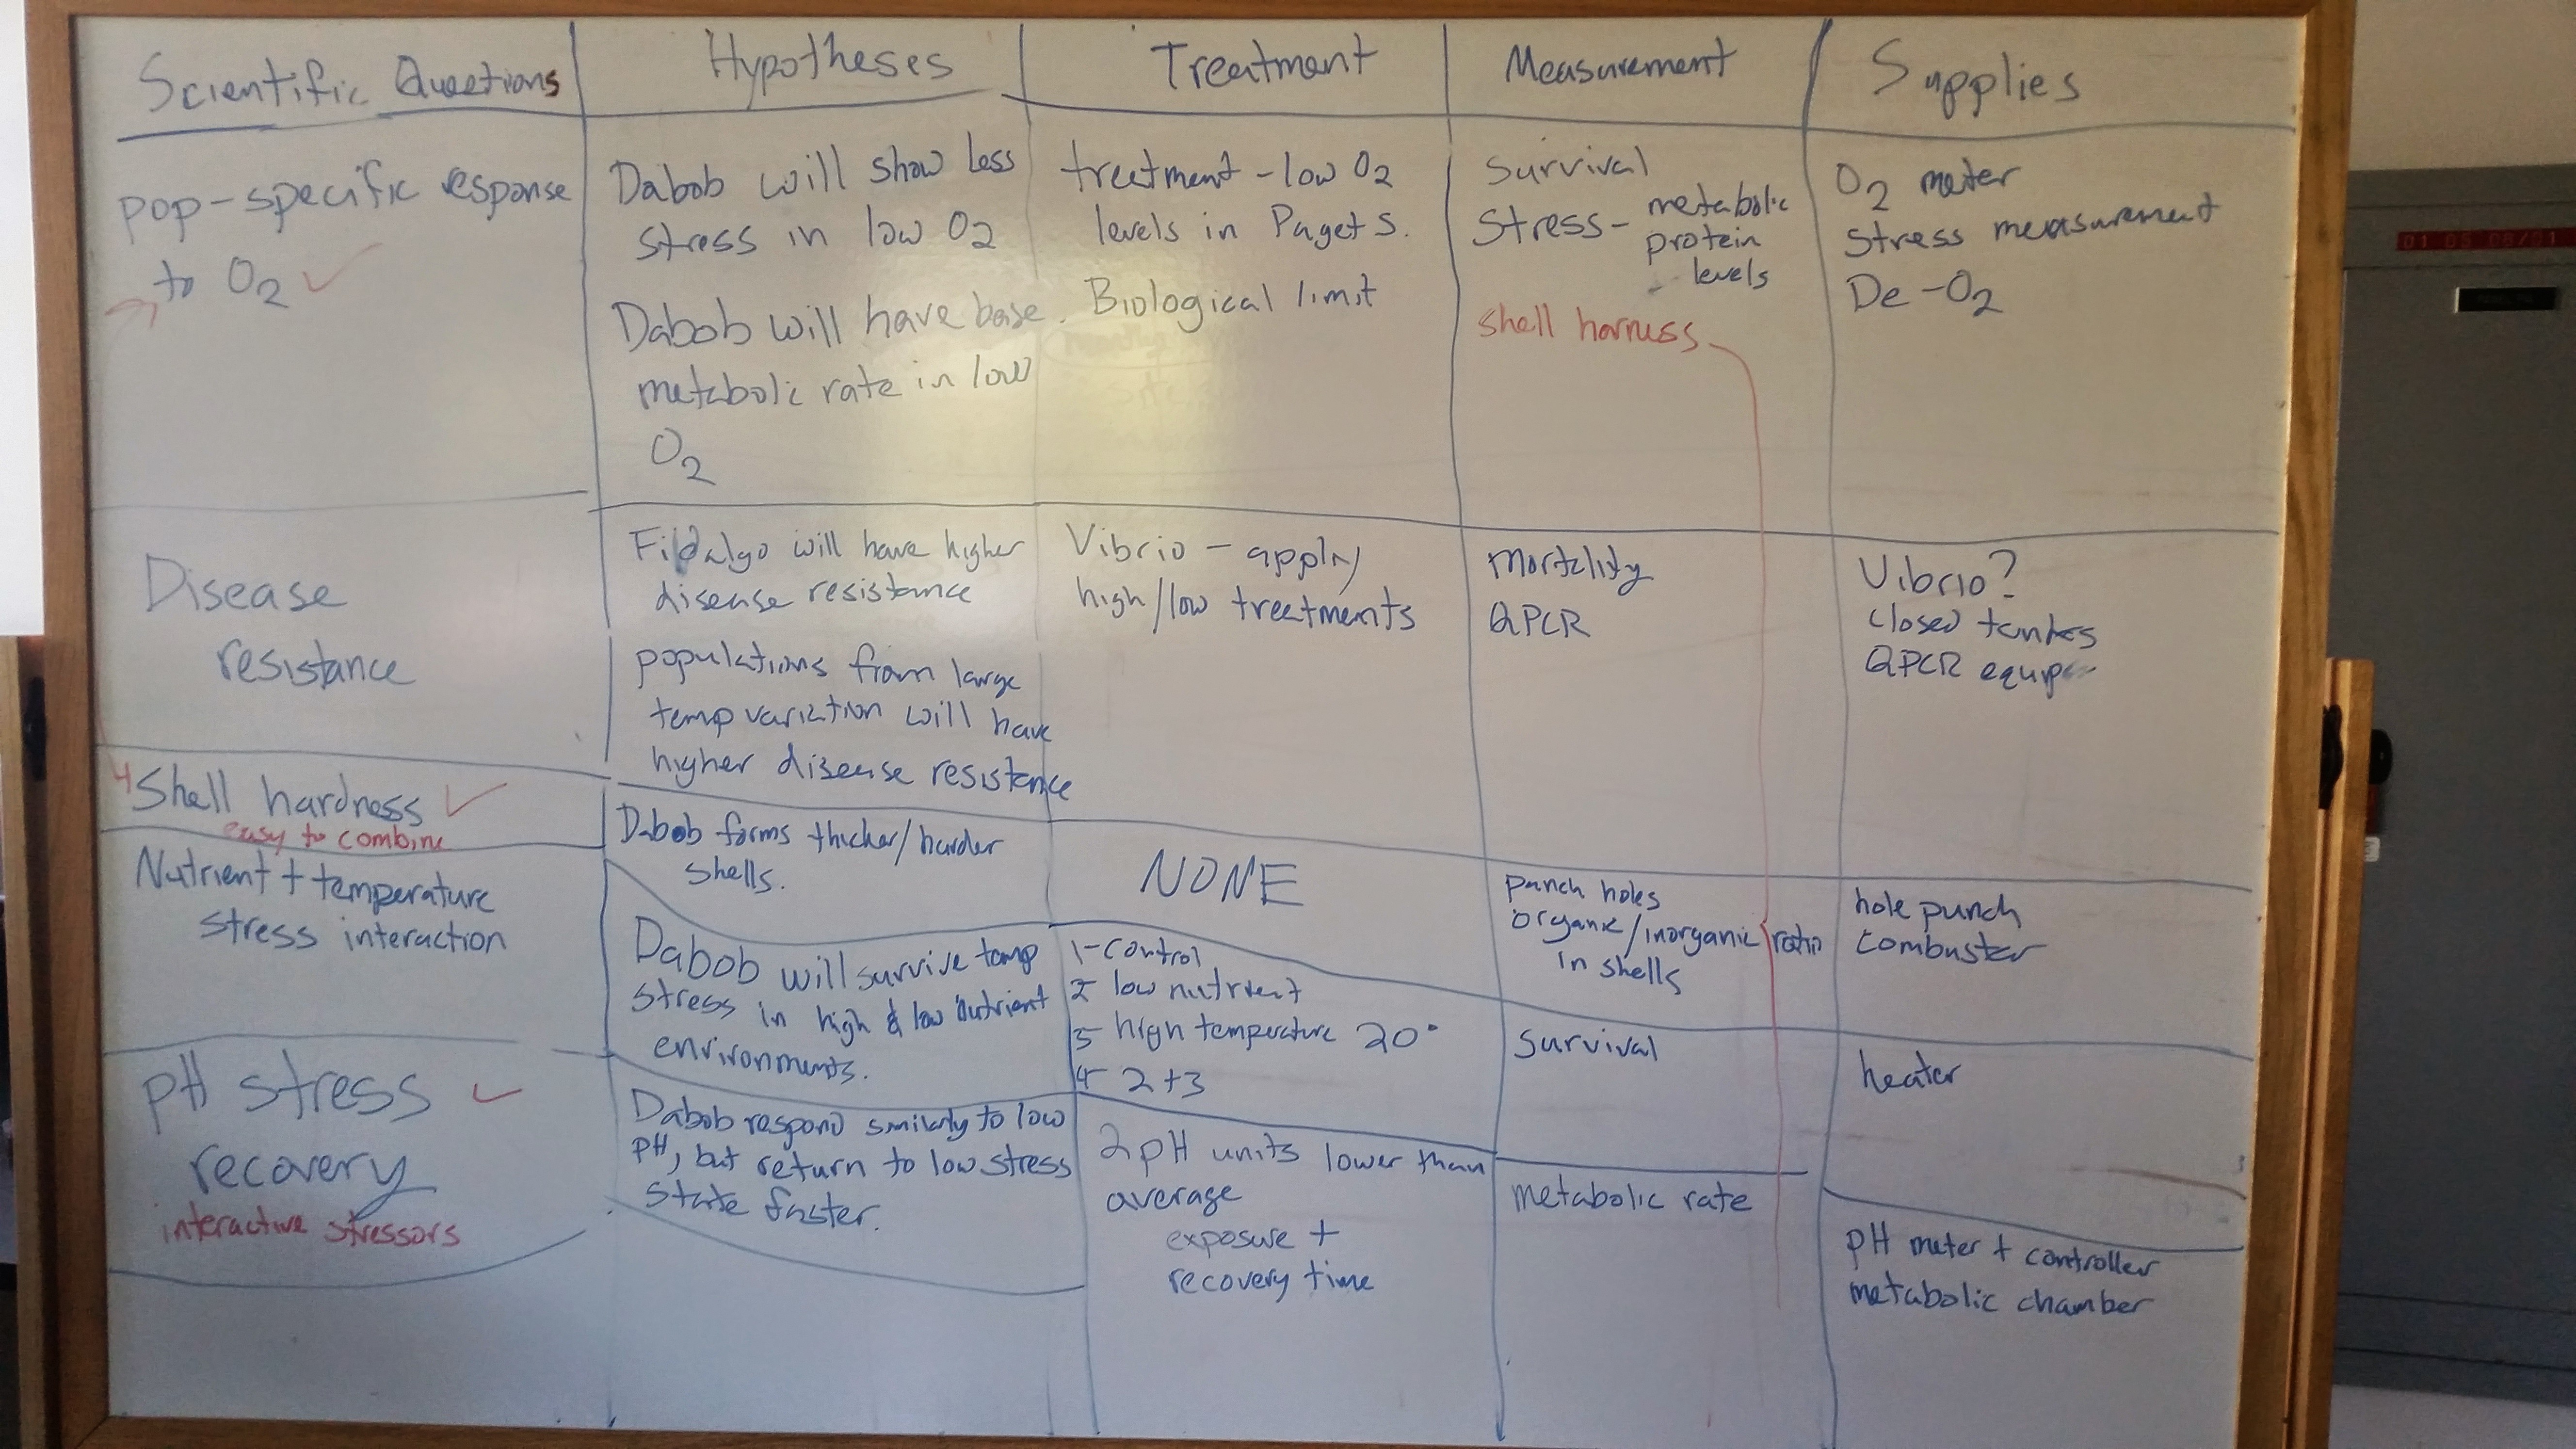 Scientific Questions
Hypotheses
Treatment
Measurement
Supplies
pop-specific response
to O2 ✓
Dabob will show less
stress in low O2
Dabob will have base
metabolic rate in low
O2
treatment - low O2
levels in Puget S.
Biological limit
Survival
Stress - metabolic
protein
levels
shell harness
O2 meter
Stress measurement
De-O2
Disease
resistance
Fidalgo will have higher
disease resistance
populations from large
temp variation will have
higher disease resistance
Vibrio - apply
high/low treatments
Mortality
QPCR
Vibrio?
closed tankes
QPCR equip
Shell hardness ✓
easy to combine
Dabob forms thicker/harder
shells.
NONE
punch holes
organic/inorganic ratio
in shells
hole punch
combuster
Nutrient + temperature
stress interaction
Dabob will survive temp
stress in high & low nutrient
environments.
1-control
2 low nutrient
3 high temperature 20°
4 2+3
Survival
heater
pH stress ✓
recovery
interactive stressors
Dabob respond similarly to low
pH, but return to low stress
state faster.
2 pH units lower than
average
exposure +
recovery time
metabolic rate
pH meter + controller
metabolic chamber